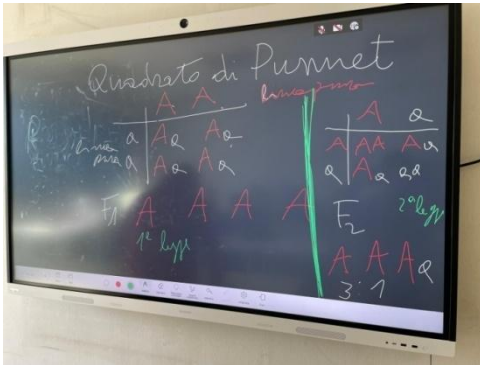 Quadrato di Punnet
linea pura
A A
linea pura
a Aa Aa
a Aa Aa
F1 A A A A
1ª legge
A a
A AA Aa
a Aa aa
F2 2ª legge
A A A a
3:1